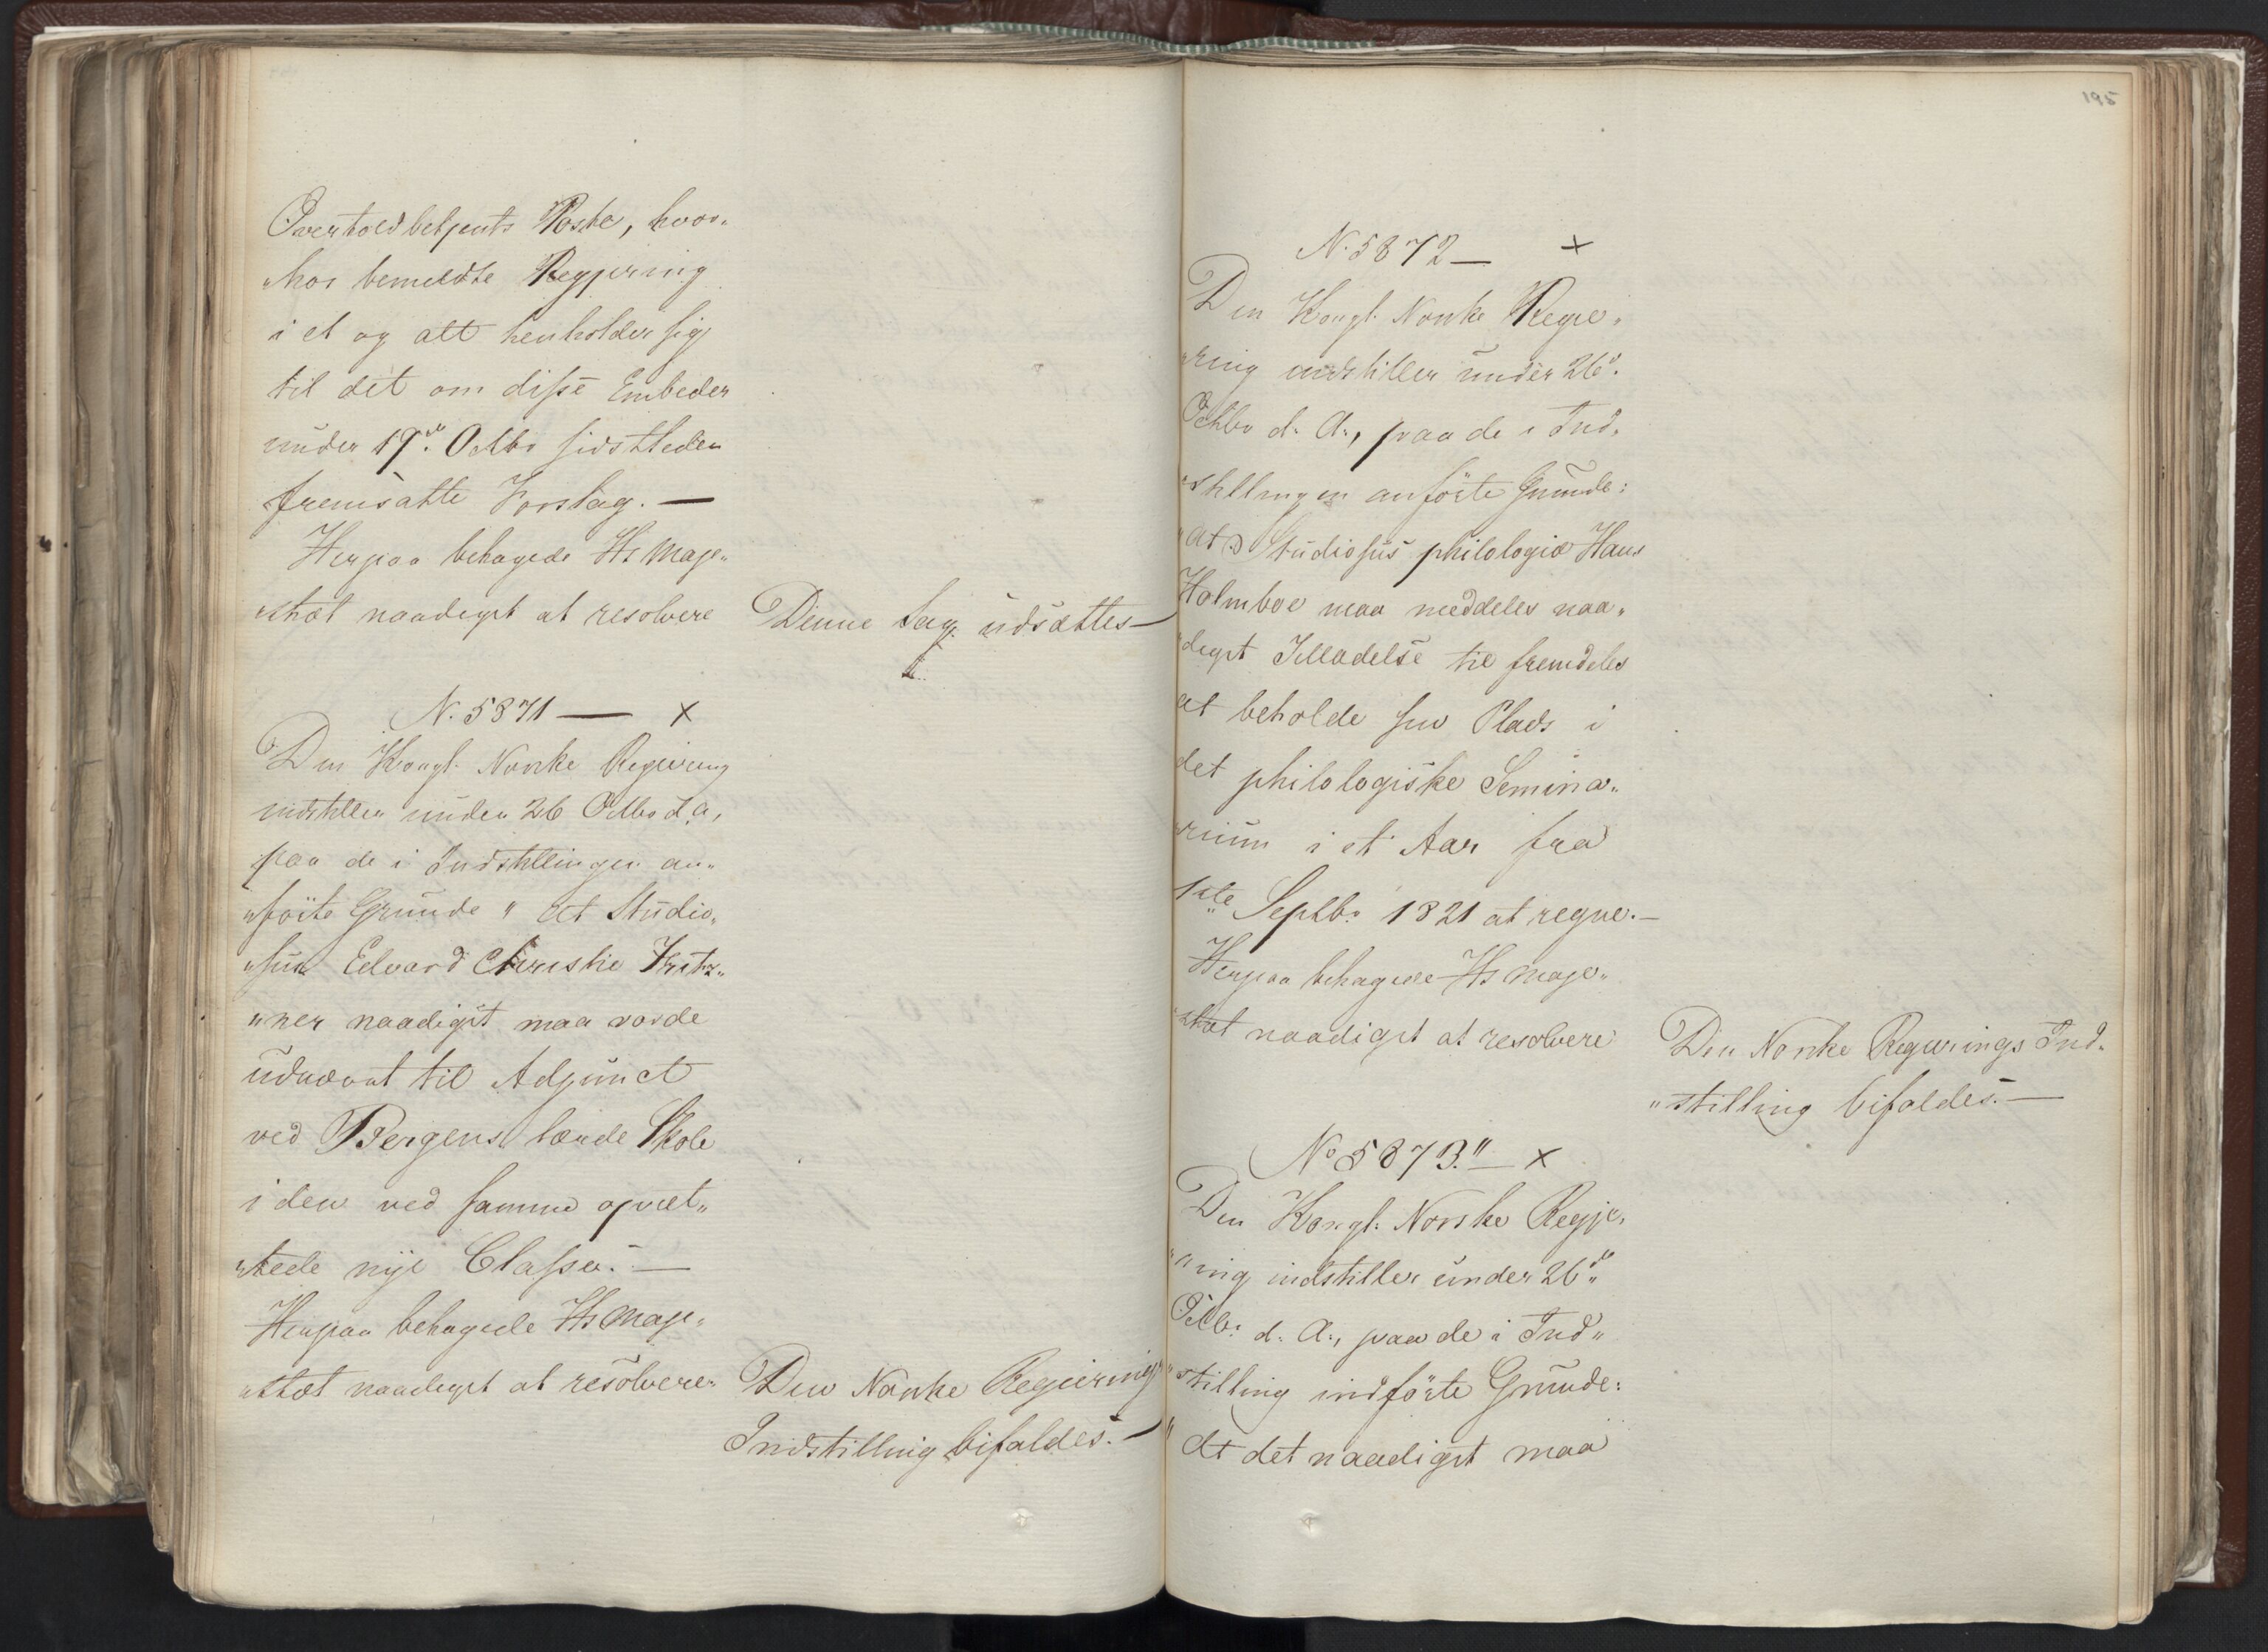 Overtoldbetjents Poste, hvor„
„hos bemeldte Regjering
i et og alt henholder sig
til det om disse Embeder
under 19de Octbr sidstleden
fremsatte Forslag. —
Herpaa behagede Hs Maje„
„stæt naadigst at resolvere
Denne Sag udsættes —
N. 5871 — x
Den Kongl. Norske Regiering
indstiller under 26 Octbr d. a,
paa de i Indstillingen an„
„förte Grunde " at Studio„
„sus Edvard Christie Fritz„
„ner naadigst maa vorde
udnævnt til Adjunct
ved Bergens lærde Skole
i den ved samme opret„
„tede nye Classe. —
Herpaa behagede Hs Maje„
„stæt naadigst at resolvere.
Den Norske Regierings
Indstilling bifaldes. —
195
N. 5872 — x
Den Kongl. Norske Regie„
„ring indstiller under 26de
Octbr d. A., paa de i Ind„
„stillingen anförte Grunde:
„at Studiosus philologiæ Hans
Holmboe maa meddeles naa„
„digst Tilladelse til fremdeles
at beholde sin Plads i
det philologiske Semina„
„rium i et Aar fra
1ste Septbr 1821 at regne. —
Herpaa behagede Hs Maje„
„stæt naadigst at resolvere
Den Norske Regierings Ind„
„stilling bifaldes. —
No 5873." — x
Den Kongl. Norske Regje„
„ring indstiller under 26de
Octbr d. A., paa de i Ind„
„stilling indförte Grunde:
" At det naadigst maa